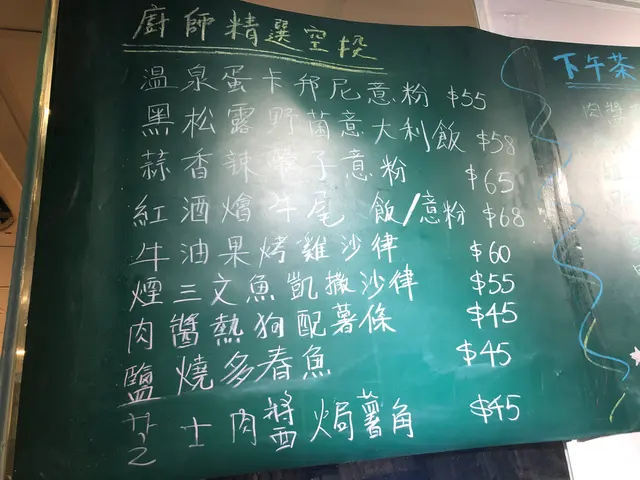 廚師精選空投
溫泉蛋卡邦尼意粉 $55
黑松露野菌意大利飯 $58
蒜香辣子意粉 $65
紅酒燴牛尾 飯/意粉 $68
牛油果烤雞沙律 $60
煙三文魚凱撒沙律 $55
肉醬熱狗配薯條 $45
鹽燒多春魚 $45
芝士肉醬焗薯角 $45
下午茶
肉醬